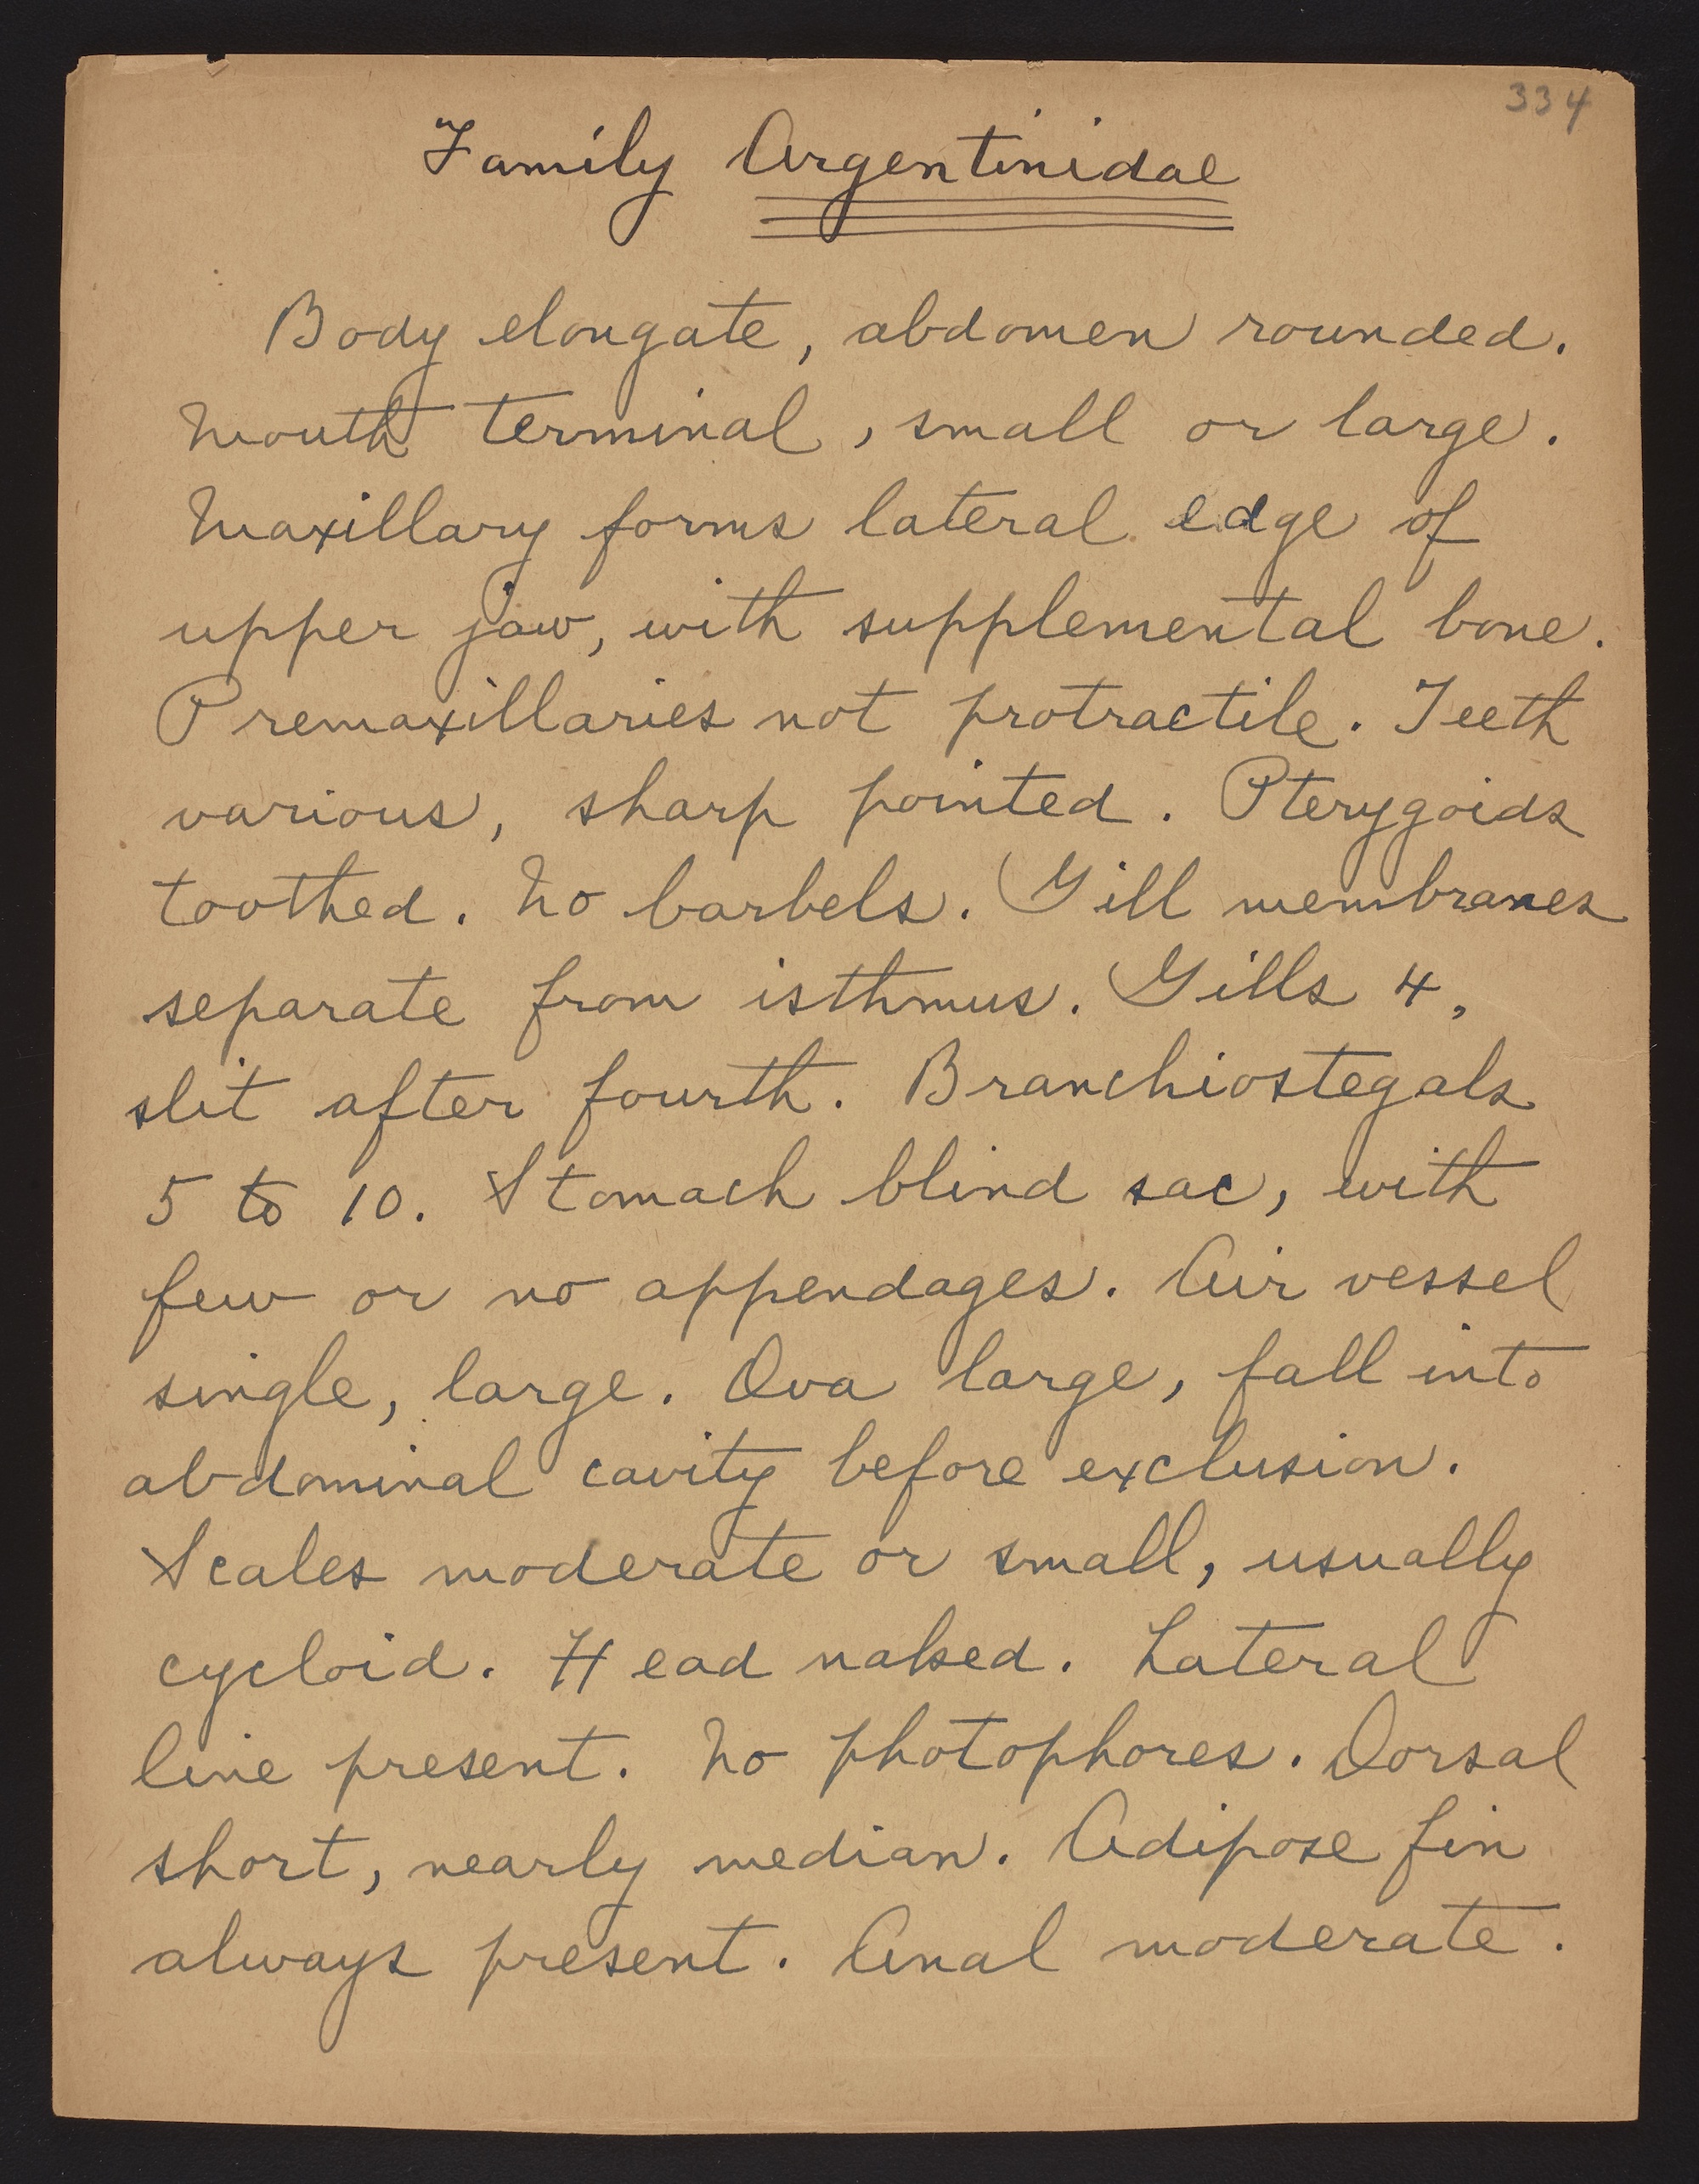 334
Family Argentinidae
Body elongate, abdomen rounded.
Mouth terminal, small or large.
Maxillary forms lateral edge of
upper jaw, with supplemental bone.
Premaxillaries not protractile. Teeth
various, sharp pointed. Pterygoids
toothed. No barbels. Gill membranes
separate from isthmus. Gills 4,
slit after fourth. Branchiostegals
5 to 10. Stomach blind sac, with
few or no appendages. Air vessel
single, large. Ova large, fall into
abdominal cavity before exclusion.
Scales moderate or small, usually
cycloid. Head naked. Lateral
line present. No photophores. Dorsal
short, nearly median. Adipose fin
always present. Anal moderate.